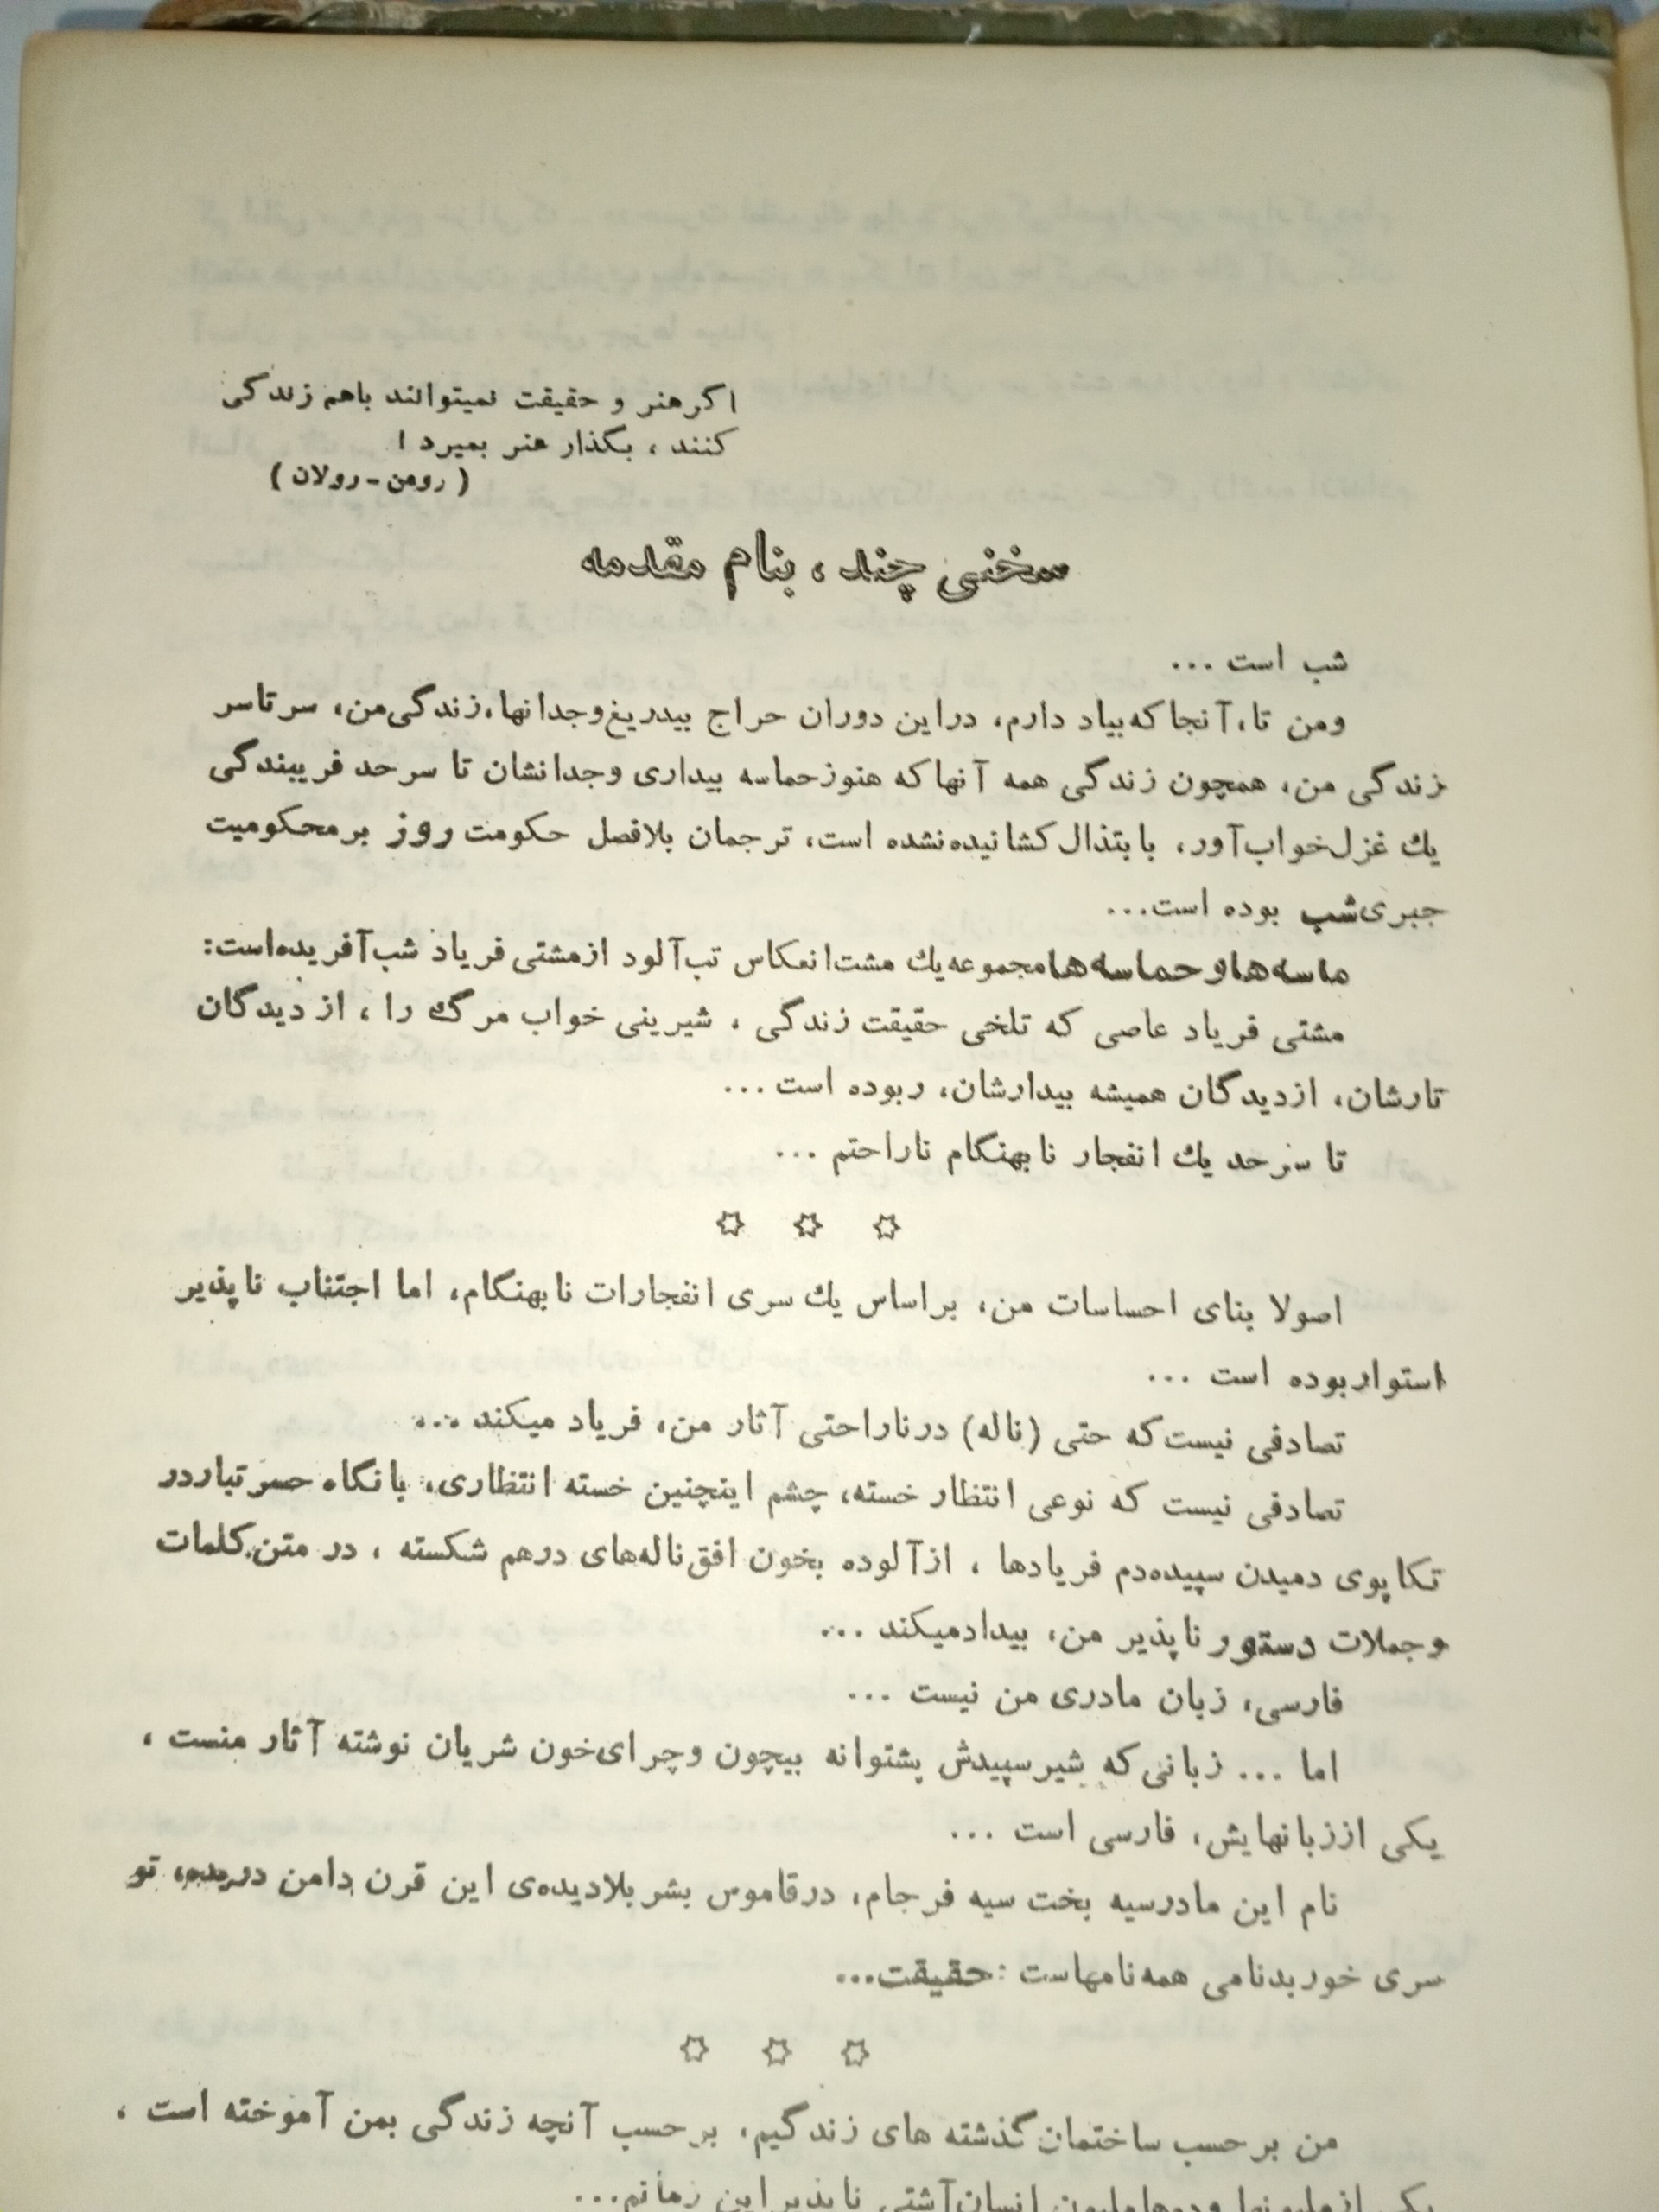 اگر هنر و حقیقت نمیتوانند باهم زندگی
کنند ، بگذار هنر بمیرد !
( رومن - رولان )
سخنی چند ، بنام مقدمه
شب است ...
ومن تا، آنجا که بیاد دارم، دراین دوران حراج بیدریغ وجدانها، زندگی من، سرتاسر
زندگی من، همچون زندگی همه آنها که هنوز حماسه بیداری وجدانشان تا سرحد فریبندگی
یك غزل خواب آور، بابتذال کشانیده نشده است، ترجمان بلافصل حکومت روز بر محکومیت
جبری شب بوده است...
ماسه ها و حماسه ها مجموعه یك مشت انعکاس تب آلود از مشتی فریاد شب آفریده است:
مشتی فریاد عاصی که تلخی حقیقت زندگی ، شیرینی خواب مرگ را ، از دیدگان
تارشان، از دیدگان همیشه بیدارشان، ربوده است ...
تا سرحد یك انفجار نابهنگام ناراحتم ...
اصولا بنای احساسات من، براساس یك سری انفجارات نابهنگام، اما اجتناب ناپذیر
استوار بوده است ...
تصادفی نیست که حتی (ناله) در ناراحتی آثار من، فریاد میکند ...
تصادفی نیست که نوعی انتظار خسته، چشم اینچنین خسته انتظاری، با نگاه حسرتبار در
تکاپوی دمیدن سپیده دم فریادها ، از آلوده بخون افق ناله‌های درهم شکسته ، در متن کلمات
وجملات دستور ناپذیر من، بیداد میکند ...
فارسی، زبان مادری من نیست ...
اما ... زبانی که شیر سپیدش پشتوانه بیچون وچرای خون شریان نوشته آثار منست ،
یکی از زبانهایش، فارسی است ...
نام این مادر سیه بخت سیه فرجام، در قاموس بشر بلادیده‌ی این قرن دامن دریده، تو
سری خور بدنامی همه نامهاست : حقیقت...
من برحسب ساختمان گذشته های زندگیم، برحسب آنچه زندگی بمن آموخته است ،
یکی از ملیونها و دهها ملیون انسان آشتی ناپذیر این زمانم...